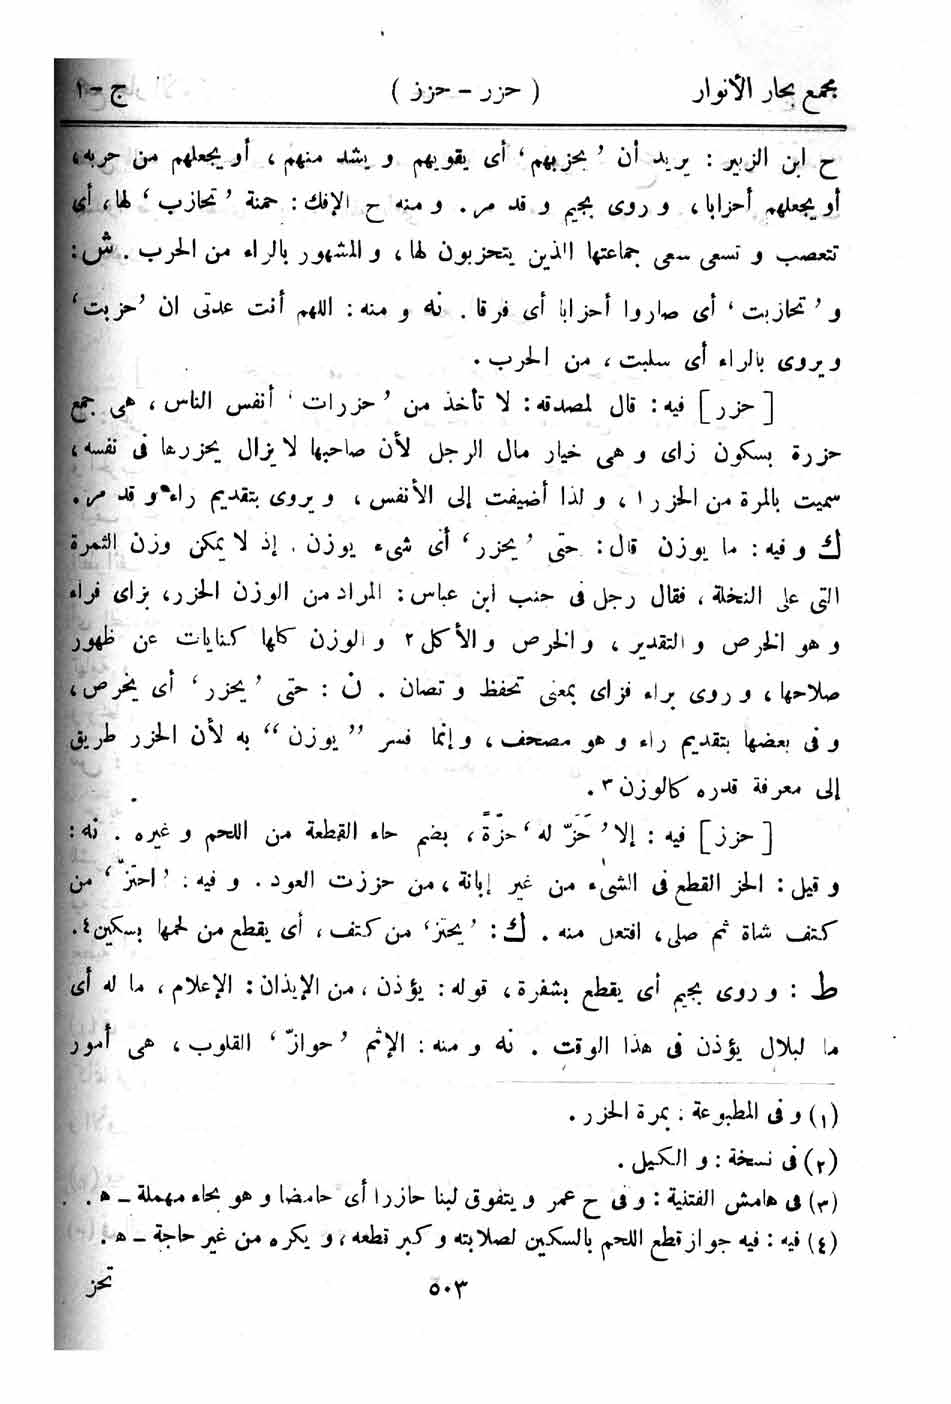 مجمع بحار الأنوار ( حزر - حزز ) ج - ١
ح ابن الزبير : يريد أن ’ يحزبهم ‘ أى يقويهم و يشد منهم ، أو يجعلهم من حزبه ،
أو يجعلهم أحزابا ، و روى بجيم و قد مر . و منه ح الإفك : حمنة ’ تحازب ‘ لها ، أى
تتعصب و تسعى سعى جماعتها االذين يتحزبون لها ، و المشهور بالراء من الحرب . ش :
و ’ تحازبت ‘ أى صاروا أحزابا أى فرقا . نه و منه : اللهم أنت عدتى ان ’ حزبت ‘
و يروى بالراء أى سلبت ، من الحرب .
[ حزر ] فيه : قال لمصدقه : لا تأخذ من ’ حزرات ‘ أنفس الناس ، هى جمع
حزرة بسكون زاى و هى خيار مال الرجل لأن صاحبها لا يزال يحزرها فى نفسه ،
سميت بالمرة من الحزر ١ ، و لذا أضيفت إلى الأنفس ، و يروى بتقديم راء و قد مر .
ك و فيه : ما يوزن قال : حتى ’ يحزر ‘ أى شىء يوزن . إذ لا يمكن وزن الثمرة
التى على النخلة ، فقال رجل فى جنب ابن عباس : المراد من الوزن الحزر ، بزاى فراء
و هو الخرص و التقدير ، و الخرص و الأكل ٢ و الوزن كلها كنايات عن ظهور
صلاحها ، و روى براء فزاى بمعنى تحفظ و تصان . ن : حتى ’ يحزر ‘ أى يخرص ،
و فى بعضها بتقديم راء و هو مصحف ، و إنما فسر ’’ يوزن ‘‘ به لأن الحزر طريق
إلى معرفة قدره كالوزن ٣ .
[ حزز ] فيه : إلا ’ حَزّ له ‘ حزّةً ، بضم حاء القطعة من اللحم و غيره . نه :
و قيل : الحز القطع فى الشىء من غير إبانة ، من حززت العود . و فيه : ’ احتزّ ‘ من
كتف شاة ثم صلى ، افتعل منه . ك : ’ يحتز ‘ من كتف ، أى يقطع من لحمها بسكين ٤ .
ط : و روى بجيم أى يقطع بشفرة ، قوله : يؤذن ، من الإيذان : الإعلام ، ما له أى
ما لبلال يؤذن فى هذا الوقت . نه و منه : الإثم ’ حوازّ ‘ القلوب ، هى أمور
(١) و فى المطبوعة : بمرة الحزر .
(٢) فى نسخة : و الكيل .
(٣) فى هامش الفتنية : و فى ح عمر و يتفوق لبنا حازرا أى حامضا و هو بحاء مهملة ــ هـ .
(٤) فيه : فيه جواز قطع اللحم بالسكين لصلابته و كبر قطعه ، و يكره من غير حاجة ــ هـ .
٥٠٣ تحز